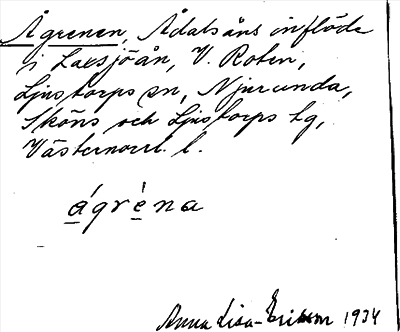 Ågrenen, Ådalsåns inflöde
i Laxsjöån, V. Roten,
Ljustorps sn, Njurunda,
Sköns och Ljustorps tg,
Västernorrl. l.
ágrèna
Anna Lisa Erikson 1934